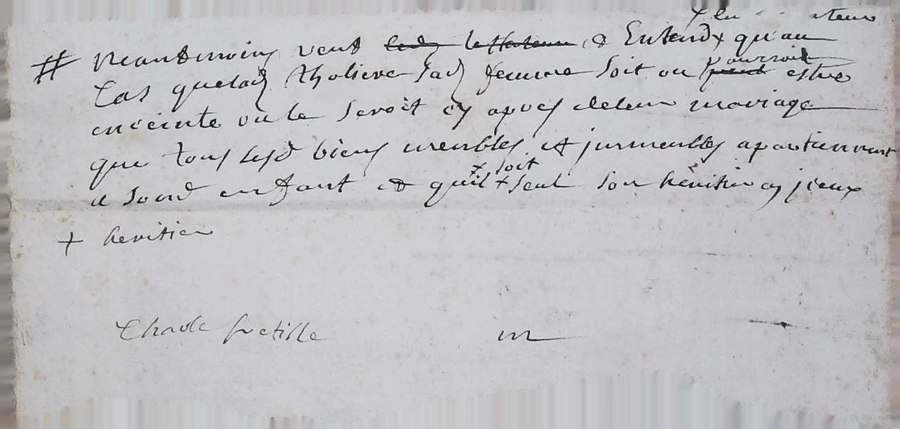 # Neantmoins veut led testateur & Entend qu'au
Cas quelad Tholieve sad femme soit ou peut pourroit estre
enceinte ou le seroit cy apres deleur mariage
que tous sesd biens meubles et jmmeubles apartiennent
a soond enfant et quil + soit seul son héritier cy jceux
+ heritier
Charle fretille